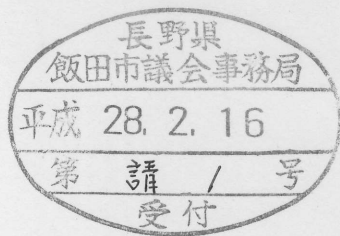 長野県
飯田市議会事務局
平成 28. 2. 16
第 請 1 号
受付